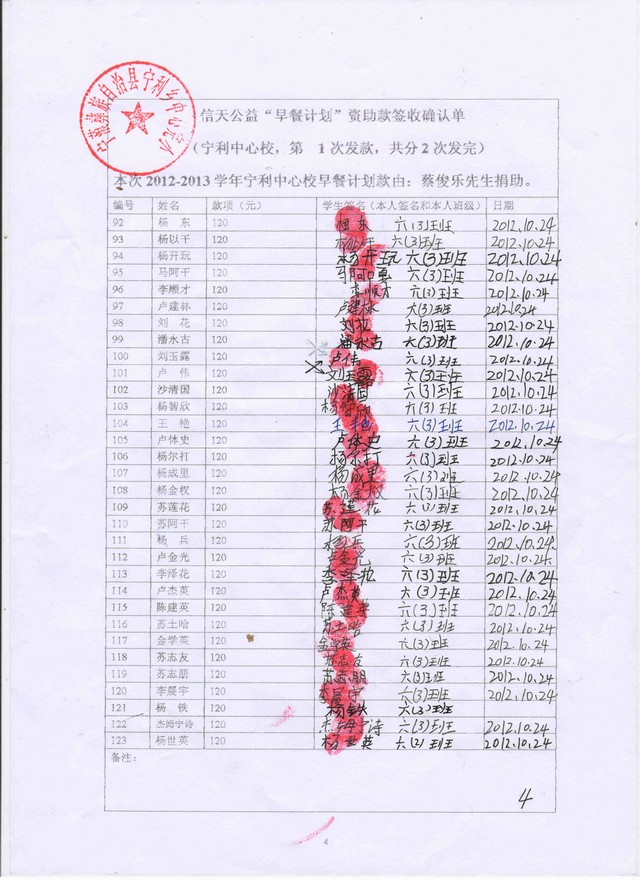 宁蒗彝族自治县宁利乡中心完小
信天公益“早餐计划”资助款签收确认单
（宁利中心校，第 1次发款，共分2次发完）
本次2012-2013学年宁利中心校早餐计划款由：蔡俊乐先生捐助。
编号 姓名 款项（元） 学生签名（本人签名和本人班级） 日期
92 杨 东 120 杨东 六(3)班 2012.10.24
93 杨以干 120 六(3)班 2012.10.24
94 杨开玩 120 杨开玩 六(3)班 2012.10.24
95 马阿干 120 六(3)班 2012.10.24
96 李顺才 120 李顺才 六(3)班 2012.10.24
97 卢建林 120 卢建林 六(3)班 2012.10.24
98 刘 花 120 刘花 六(3)班 2012.10.24
99 潘永古 120 潘永古 六(3)班 2012.10.24
100 刘玉露 120 卢伟 六(3)班 2012.10.24
101 卢 伟 120 刘玉露 六(3)班 2012.10.24
102 沙清国 120 沙清国 六(3)班 2012.10.24
103 杨智欣 120 杨智欣 六(3)班 2012.10.24
104 王 艳 120 王艳 六(3)班 2012.10.24
105 卢体史 120 卢体史 六(3)班 2012.10.24
106 杨尔打 120 杨尔打 六(3)班 2012.10.24
107 杨成里 120 杨成里 六(3)班 2012.10.24
108 杨金权 120 杨金权 六(3)班 2012.10.24
109 苏莲花 120 苏莲花 六(3)班 2012.10.24
110 苏阿干 120 苏阿干 六(3)班 2012.10.24
111 杨 兵 120 杨兵 六(3)班 2012.10.24
112 卢金光 120 卢金光 六(3)班 2012.10.24
113 李泽花 120 李泽花 六(3)班 2012.10.24
114 卢杰英 120 卢杰英 六(3)班 2012.10.24
115 陈建英 120 陈建英 六(3)班 2012.10.24
116 苏土哈 120 苏土哈 六(3)班 2012.10.24
117 金学英 120 金学英 六(3)班 2012.10.24
118 苏志友 120 苏志友 六(3)班 2012.10.24
119 苏志朋 120 苏志朋 六(3)班 2012.10.24
120 李晨宇 120 李晨宇 六(3)班 2012.10.24
121 杨 铁 120 杨铁 六(3)班 2012.10.24
122 杰姆宁诗 120 六(3)班 2012.10.24
123 杨世英 120 杨世英 六(2)班 2012.10.24
备注：
4
4